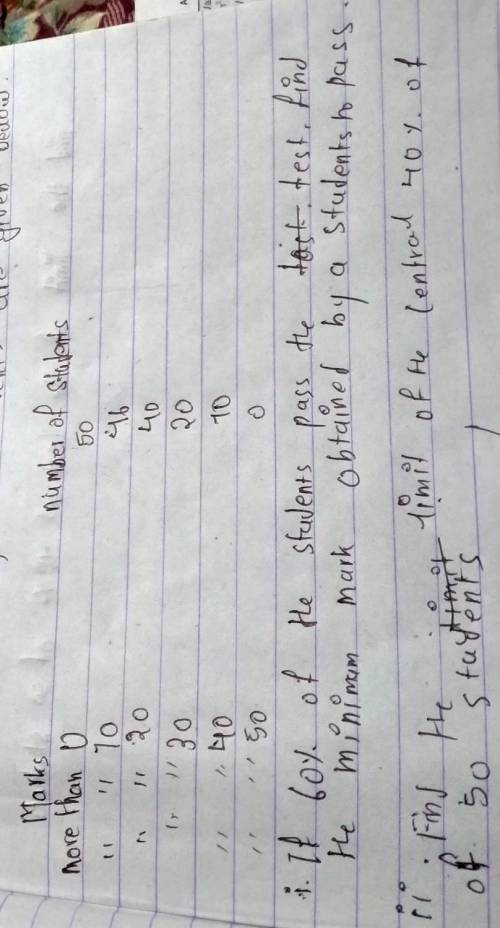 are given below.
Marks number of students
more than 0 50
" " 10 46
" " 20 40
" " 30 20
" " 40 10
" " 50 0
i. If 60% of the students pass the test. find
the minimum mark obtained by a students to pass.
ii. Find the limit of the central 40% of
of 50 students